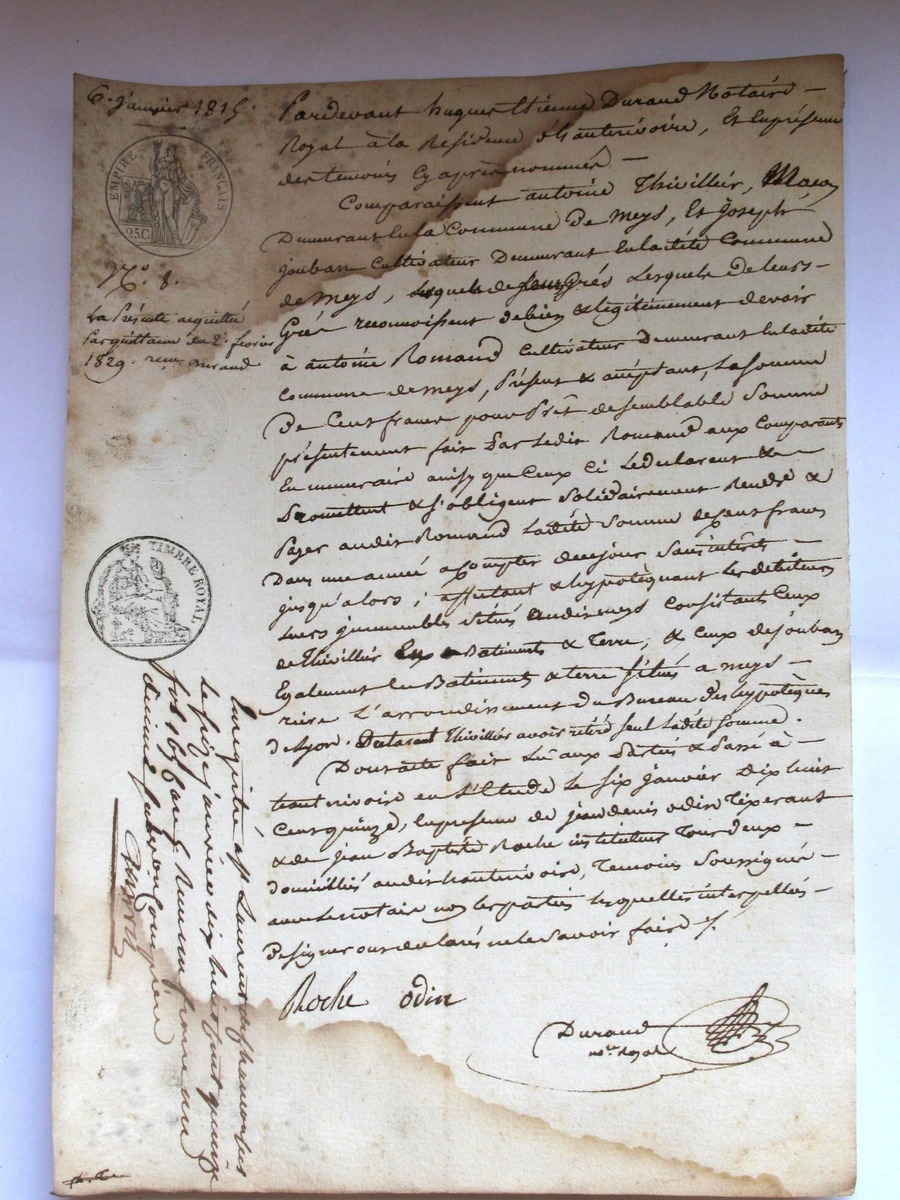 6. janvier 1815.
EMPIRE FRANÇAIS
25C.
N.o 8.
La presente acquittée
par quittance du 2 fevrier
1829. reçu Durand
TIMBRE ROYAL
Pardevant hugues Etienne Durand Notaire
Royal à la Residence d'hauterivoire, et en présence
des temoins cy après nommés
Comparaissent antoine Thivillier, Maçon
Demeurant en la Commune de Meys, et joseph
jouban Cultivateur Demeurant en la dite Commune
de Meys, Lesquels de leurs
Grés reconnoissent debien & légitimement devoir
à antoine Romand Cultivateur demeurant en la dite
Commune de meys, Présent & acceptant, La somme
De Cent francs pour Prêt de semblable Somme
présentement fait Par Ledit Romand aux Comparants
En numeraire ainsy que Ceux Ci Le declarent &
Promettent & s'obligent Solidairement Rendre &
Payer audit Romand Ladite Somme de Cent francs
Dans une année a Compter de ce jour Sans interêts
jusqu'alors ; affectant & hypotèquant les debiteurs
Leurs jmmeubles Situés audit meys Consistants Ceux
de Thivillier En Batiments & Terre, & Ceux de jouban
Egalement en Batiments & terre Situés a meys
riere L'arrondissement du Bureau des hypotèques
de Lyon. Declarant Thivillier avoir retiré seul Ladite Somme.
Dont acte fait Lû aux Parties & Passé à
hauterivoire en L'Etude Le six janvier dix huit
Cent quinze, En presence de jean denis odin
& de jean Baptiste Roche instituteur Tous deux
domiciliés audit hauterivoire, Temoins Soussignés
avec Le notaire non les parties lesquelles interpellés
De signer ont declarés ne le Savoir faire /.
Roche odin
Durand
n.re Royal
Enregistré à St Laurent de chamousset
le seize janvier dix huit cent quinze
reçu un franc
decime compris